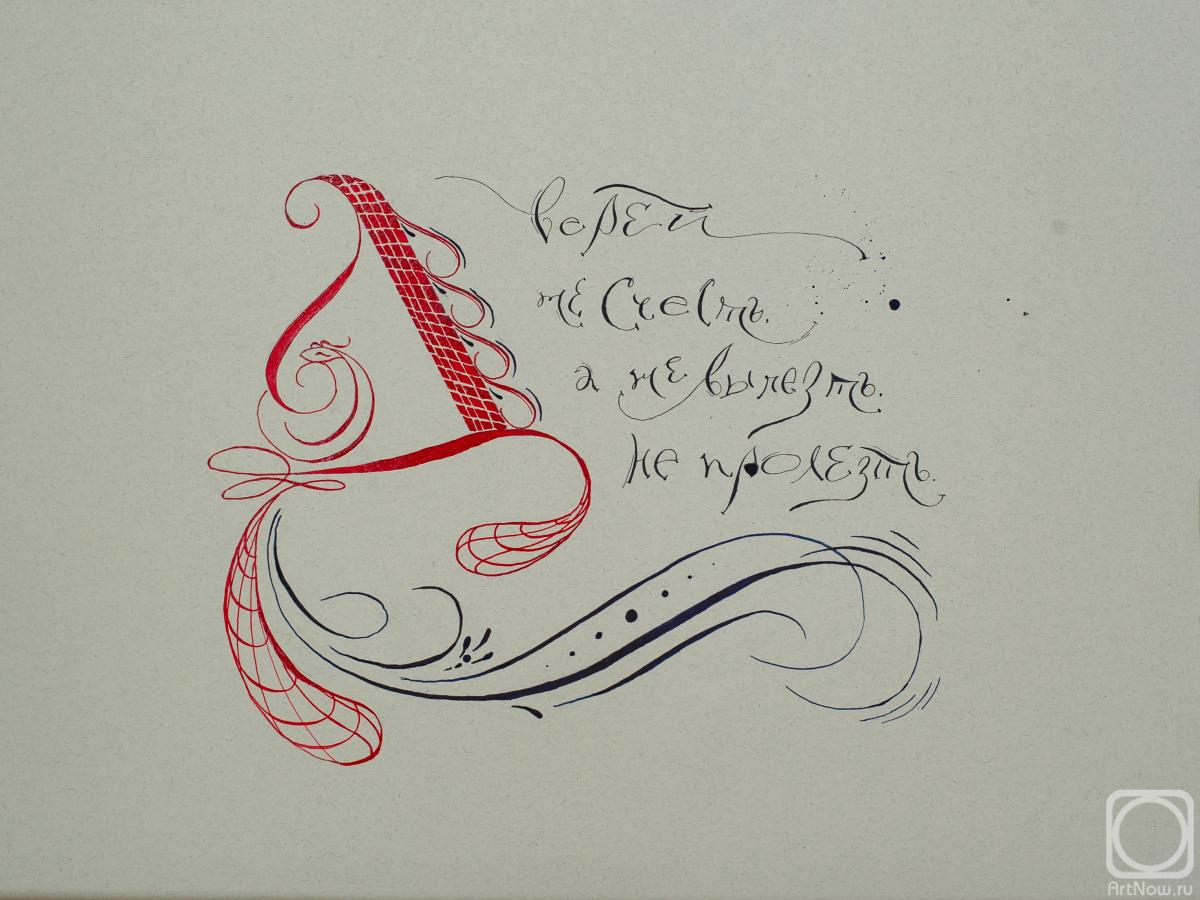 Дверей
не Счесть.
а не вылезть.
не пролезть.
ArtNow.ru